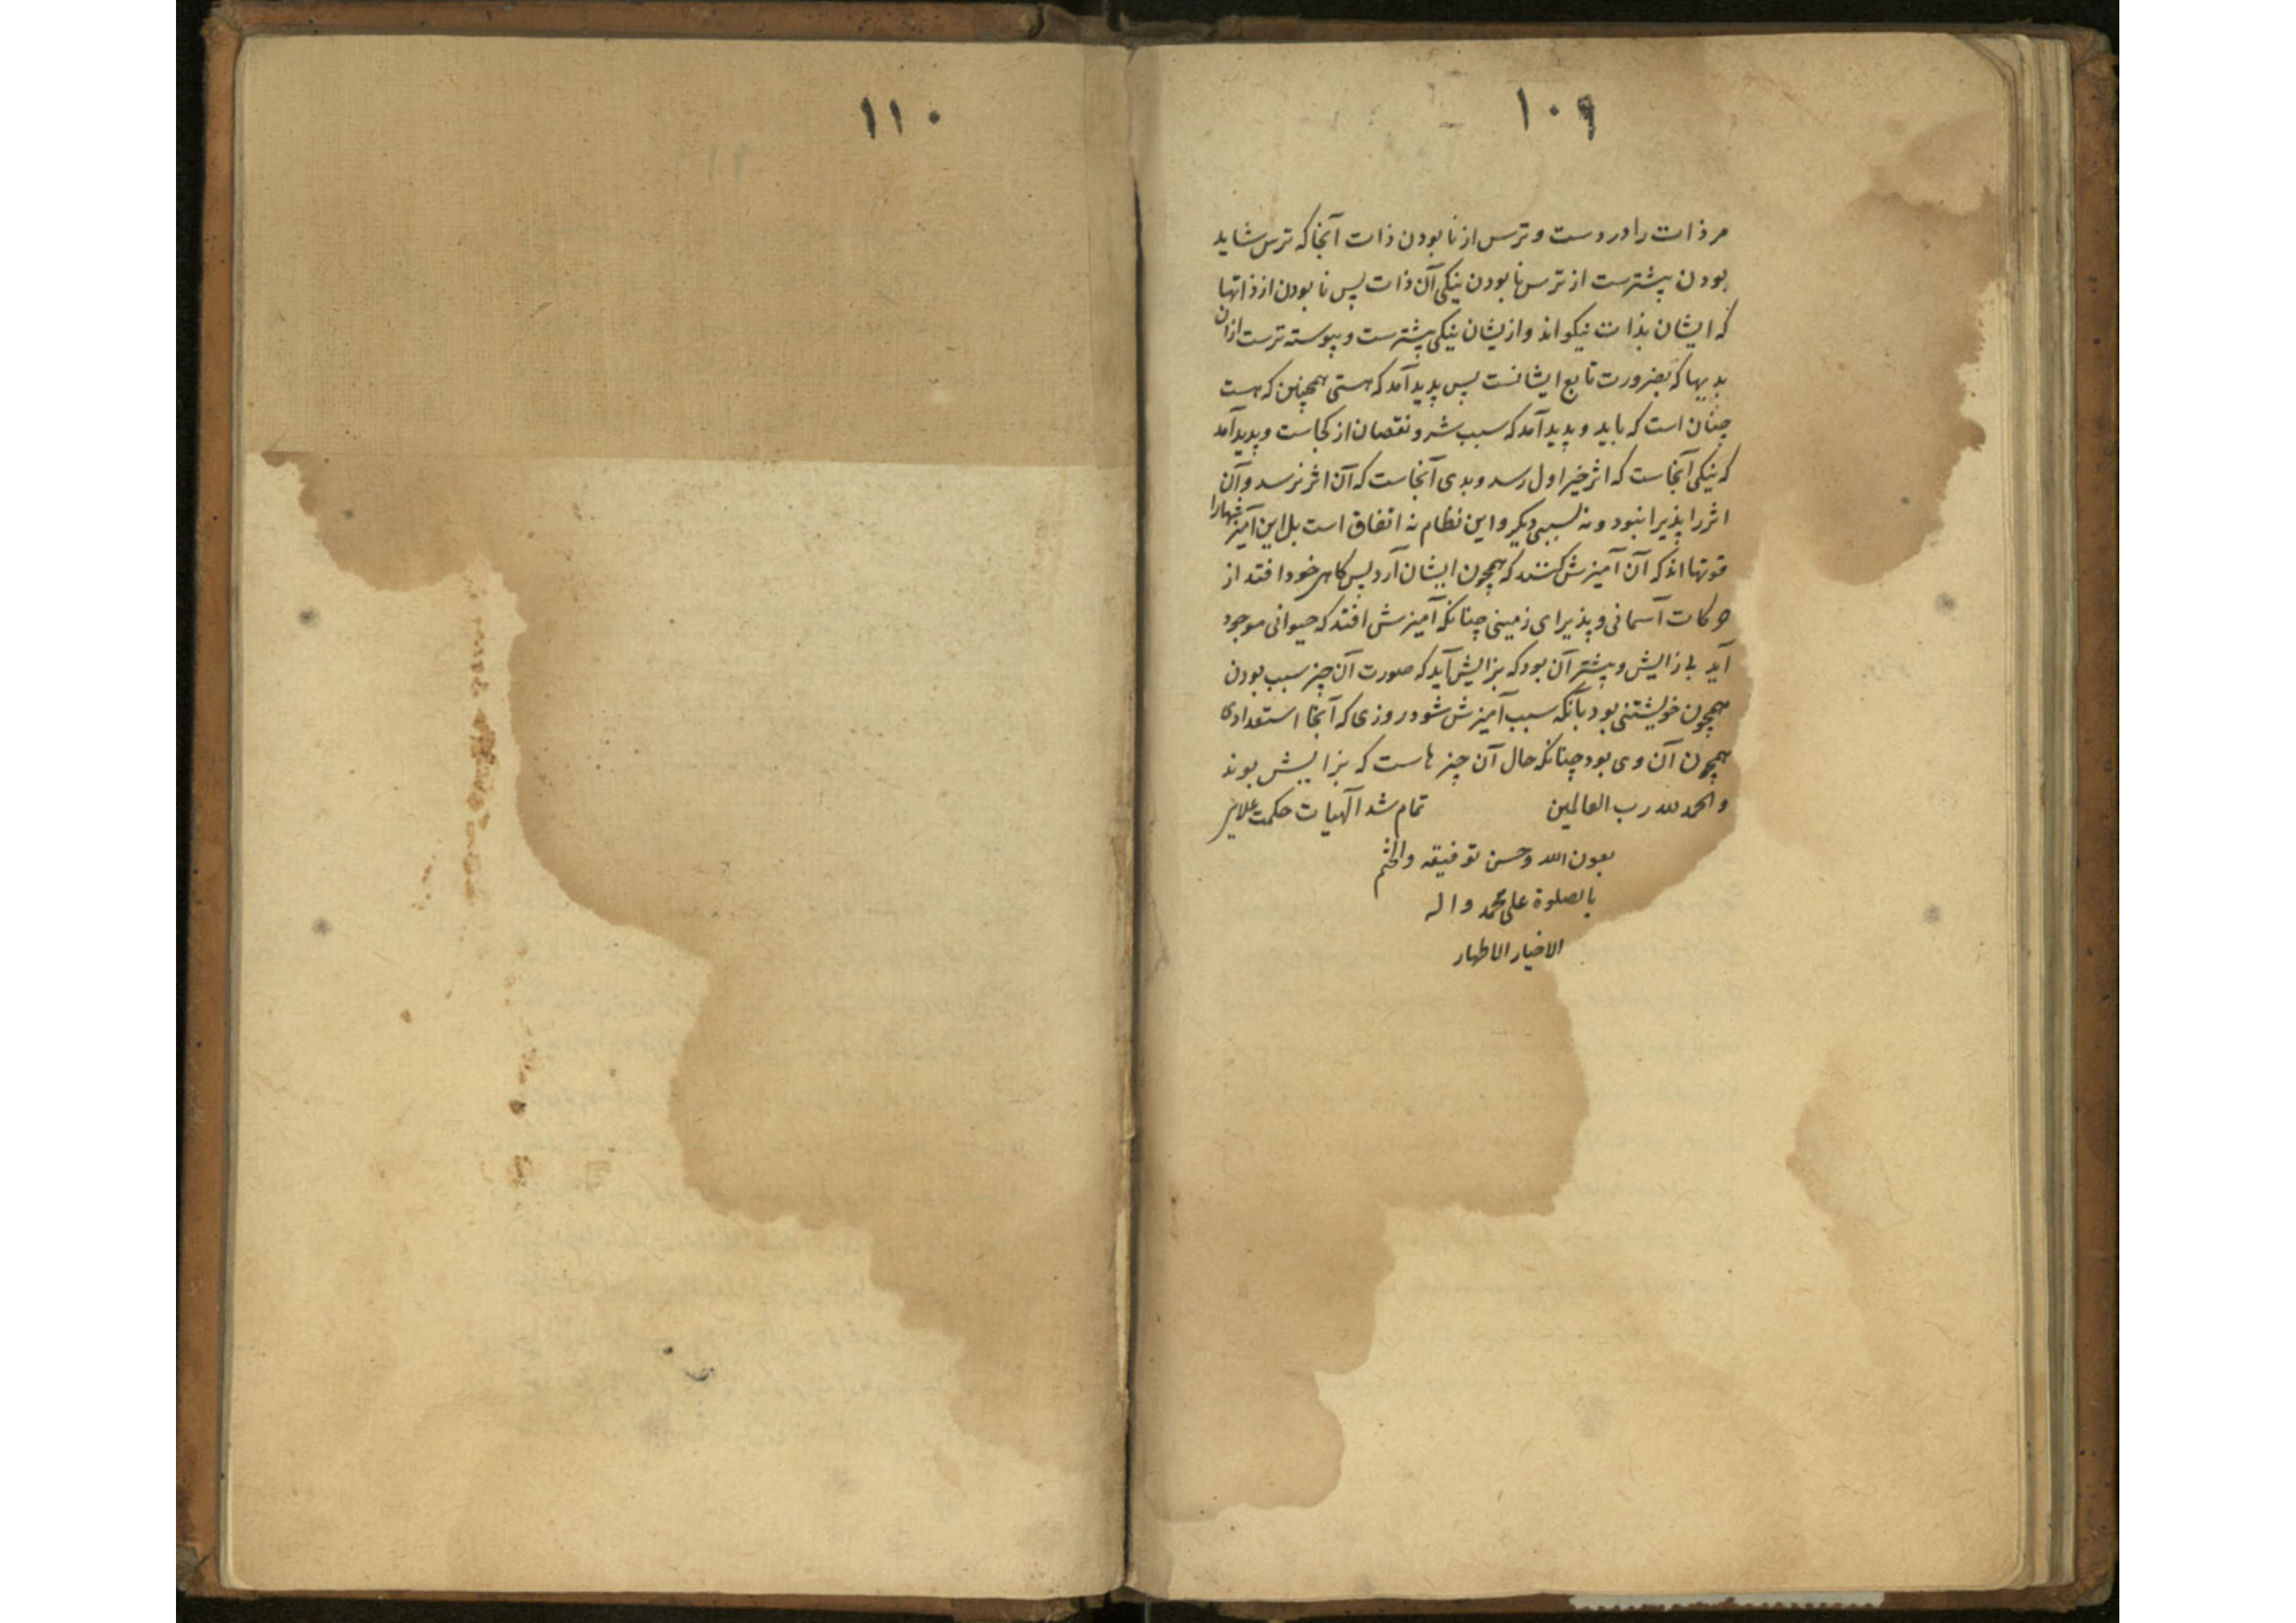 ۱۰۹
مر ذات را در وست و ترس از نابودن ذات آنجا که ترس شاید
بودن بیشترست از ترس نابودن نیکی آن ذات پس نابودن از ذاتها
که ایشان بذات نیکو اند و ازیشان نیکی بیشترست و پیوسته ترست ازان
بدیها که بضرورت تابع ایشانست پس پدید آمد که هستی همچنین که هست
چنان است که باید و پدید آمد که سبب شر و نقصان از کجاست و پدید آمد
که نیکی آنجاست که اثر خیر اول رسد و بدی آنجاست که آن اثر نرسد و آن
اثر را پذیرا نبود و نه بسببی دیگر و این نظام نه اتفاق است بل این آمیزشها را
قوتها اند که آن آمیزش کنند که همچون ایشان آرد پس کاهی خود افتد از
حرکات آسمانی و پذیرای زمینی چنانکه آمیزش افتد که حیوانی موجود
آید بی زایش و بیشتر آن بود که بزایش آید که صورت آن چیز سبب بودن
همچون خویشتنی بود بآنکه سبب آمیزش شود روزی که آنجا استعدادی
همچون آن وی بود چنانکه حال آن چیزهاست که بزایش بوند
والحمد لله رب العالمین تمام شد آلهیات حکمت علایی
بعون الله وحسن توفیقه والختم
بالصلوة علی محمد واله
الاخیار الاطهار
۱۱۰